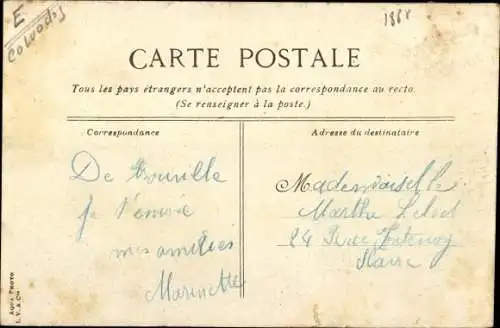 E
Calvados
CARTE POSTALE
Tous les pays étrangers n'acceptent pas la correspondance au recto.
(Se renseigner à la poste.)
Correspondance
De Trouville
je t'envoie
mes amitiés
Marinette
Adresse du destinataire
Mademoiselle
Marthe
24 Rue Fontenoy
AQUA PHOTO
L. V. & Cie